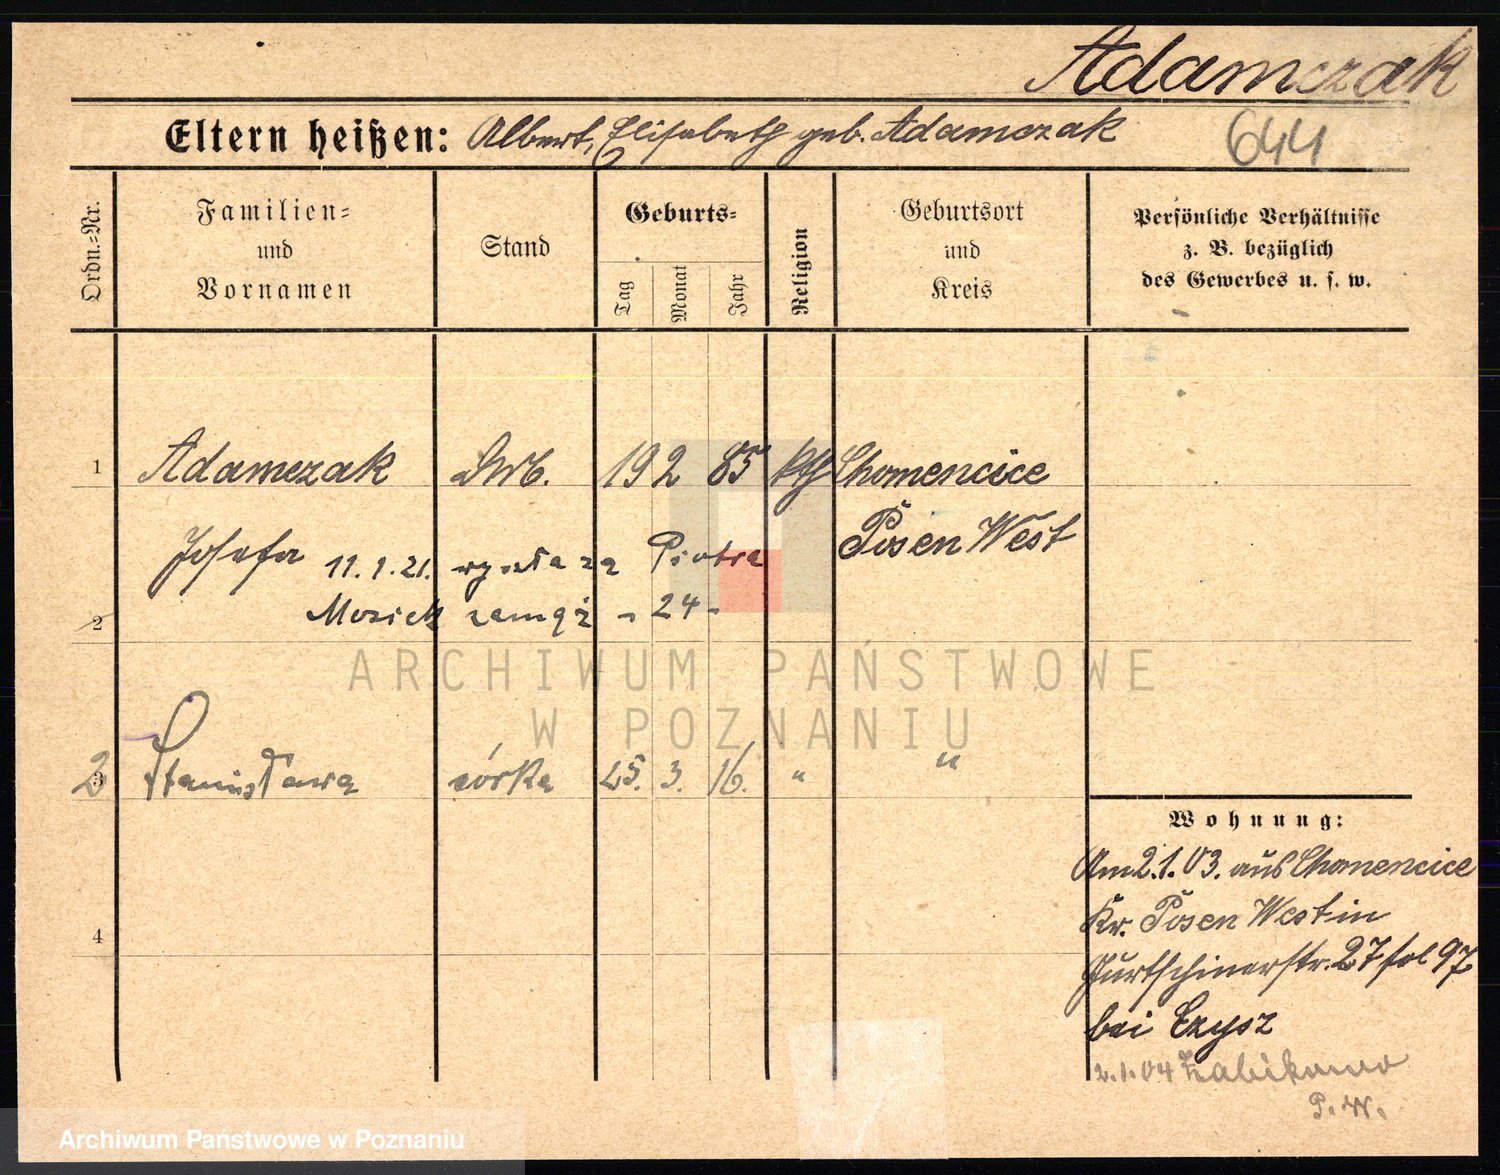 Adamczak
Eltern heißen: Albert, Elisabeth geb. Adamczak
644
Ordn.=Nr.
Familien=
und
Vornamen
Stand
Geburts=
Tag
Monat
Jahr
Religion
Geburtsort
und
Kreis
Persönliche Verhältnisse
z. B. bezüglich
des Gewerbes u. s. w.
1 Adamczak 19 2 85 kth Chomencice
Josefa Posen West
11.1.21. wyszła za Piotra
2 Mosiek zamąż - 24 -
2 3 Stanisława córka 25. 3. 16. " "
Wohnung:
Am 2.1.03. aus Chomencice
Kr. Posen West in
4
Jurtschinerstr. 27 fol 97
bei Czysz
2.1.04 Żabikowo
P. W.
ARCHIWUM PAŃSTWOWE
W POZNANIU
Archiwum Państwowe w Poznaniu